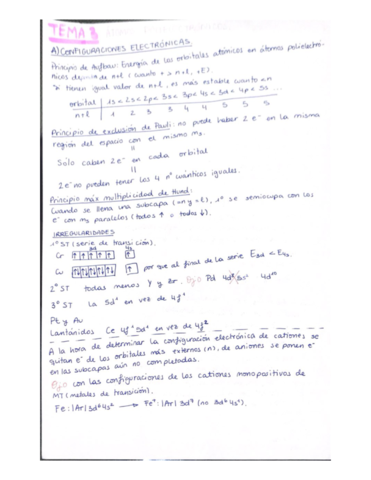 TEMA 3
A) CONFIGURACIONES ELECTRÓNICAS
Principio de Aufbau: Energía de los orbitales atómicos en átomos polielectró-
nicos depende de n+l (cuanto > n+l, ↑E).
* tienen igual valor de n+l, es más estable cuanto ↓n
orbital | 1s < 2s < 2p < 3s < 3p < 4s < 3d < 4p < 5s ...
n+l | 1 2 3 3 4 4 5 5 5
Principio de exclusión de Pauli: no puede haber 2 e⁻ en la misma
región del espacio con el mismo ms.
||
Sólo caben 2e⁻ en cada orbital
||
2e⁻ no pueden tener los 4 nº cuánticos iguales.
Principio máx multiplicidad de Hund:
Cuando se llena una subcapa (=n y =l), 1º se semiocupa con los
e⁻ con ms paralelos (todos ↑ o todos ↓).
IRREGULARIDADES
1º ST (serie de transición).
3d 4s
Cr ↑ ↑ ↑ ↑ ↑ ↑
Cu ↑↓ ↑↓ ↑↓ ↑↓ ↑↓ ↑ porque al final de la serie E3d < E4s.
2º ST todas menos Y y Zr. Ojo Pd 4d¹⁰
3º ST La 5d¹ en vez de 4f¹
Pt y Au
Lantánidos Ce 4f¹ 5d¹ en vez de 4f²
A la hora de determinar la configuración electrónica de cationes, se
quitan e⁻ de los orbitales más externos (n), de aniones se ponen e⁻
en las subcapas aún no completadas.
Ojo con las configuraciones de los cationes monopositivos de
MT (metales de transición).
Fe: |Ar| 3d⁶4s² → Fe⁺: |Ar| 3d⁷ (no 3d⁶ 4s¹).